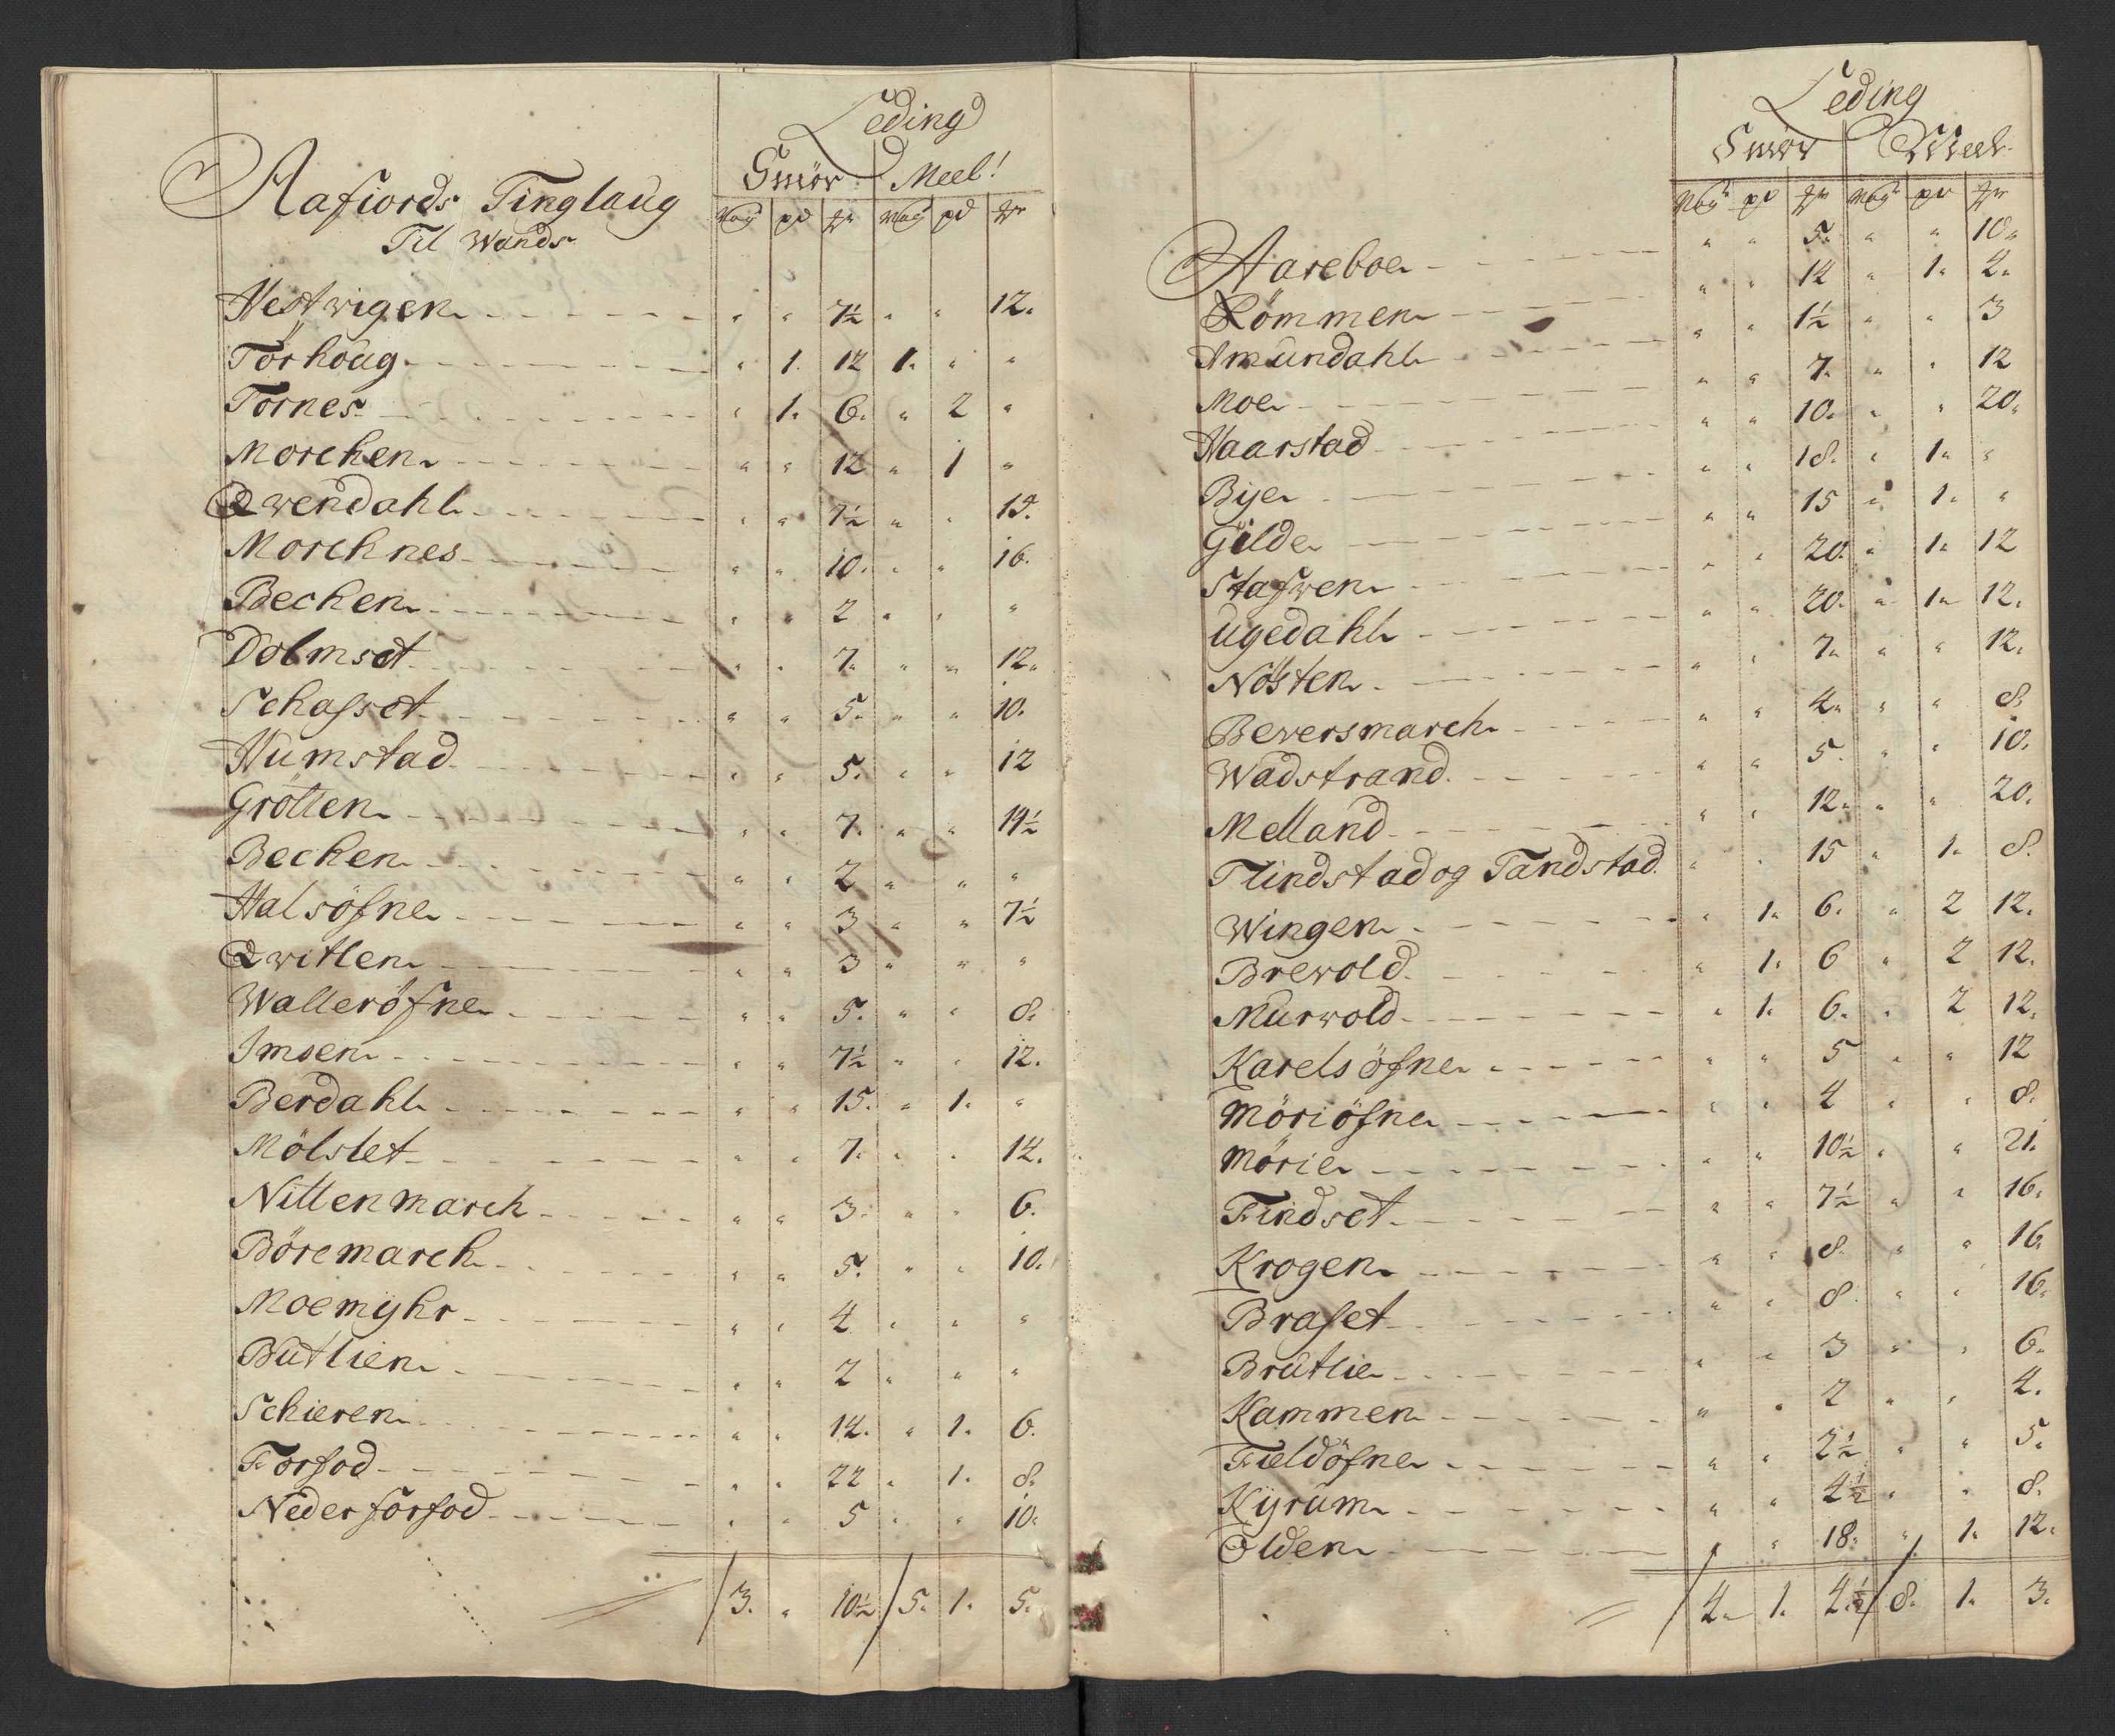 Leding
Smör Meel
Aafiords Tinglaug
Til Wands
Wog pd ℔ Wog pd ℔
Westwigen " " 7½ " " 12.
Törhoug " 1. 12 1. " "
Tornes " 1. 6. " 2 "
Morchen " " 12 " 1 "
Qwendahl " " 7½ " " 15.
Morchnes " " 10. " " 16.
Bechen " " 2 " " "
Dolmset " " 7. " " 12.
Schafset " " 5. " " 10.
Humstad " " 5. " " 12
Grötten " " 7. " " 14½
Bechen " " 2 " " "
Halsöfne " " 3 " " 7½
Qwitlen " " 3 " " "
Walleröfne " " 5. " " 8.
Imsen " " 7½ " " 12.
Berdahl " " 15. " 1. "
Mölslet " " 7. " " 14.
Nittenmarch " " 3. " " 6.
Böremarch " " 5. " " 10.
Moemyhr " " 4 " " "
Butlien " " 2 " " "
Schieren " " 14. " 1. 6.
Forfod " " 22 " 1. 8.
Nederforfod " " 5 " " 10.
3. " 10½ 5. 1. 5.
Leding
Smör Meel
Wog pd ℔ Wog pd ℔
Aareboe " " 5. " " 10.
Römmen " " 14 " 1. 4.
Amundahl " " 1½ " " 3
Moe " " 7. " " 12
Haarstad " " 10. " " 20.
Bye " " 18. " 1. "
Gilde " " 15 " 1. "
Stafwen " " 20. " 1. 12
Ugedahl " " 20. " 1. 12.
Nösten " " 7. " " 12.
Bewersmarch " " 4. " " 8.
Wadstrand " " 5. " " 10.
Melland " " 12. " " 20.
Flindstad og Tandstad " " 15 " 1. 8.
Wingen " 1. 6. " 2 12.
Brewold " 1. 6 " 2 12.
Murwold " 1. 6. " 2 12.
Karelsöfne " " 5 " " 12
Möriöfne " " 4 " " 8.
Mörie " " 10½ " " 21.
Findset " " 7½ " " 16.
Krogen " " 8. " " 16.
Brafset " " 8. " " 16.
Brutlie " " 3 " " 6.
Kammen " " 2 " " 4.
Fieldöfne " " 2½ " " 5.
Kyrum " " 4½ " " 8.
Olden " " 18. " 1. 12.
4. 1. 4.½ 8. 1. 3.